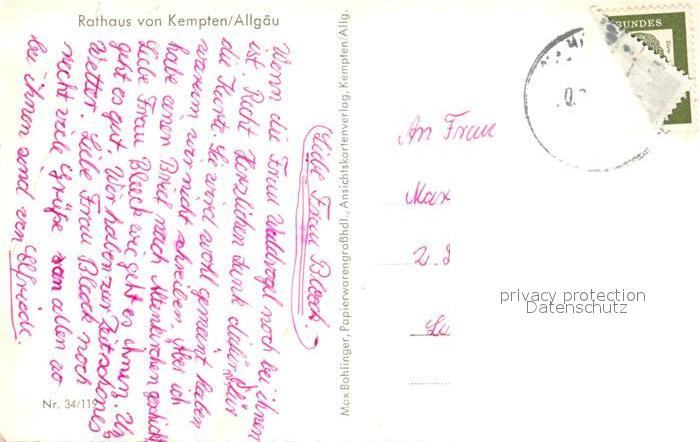 Rathaus von Kempten/Allgäu
Liebe Frau Black.
Wenn die Frau Waldvogel noch bei ihnen
ist. Recht Herzlichen Dank dafür für
die Karte. Sie wird wohl gemeint haben
warum wir nicht schreiben. Aber ich
habe einen Brief nach Altenkirchen geschickt
Liebe Frau Black wie geht es ihnen. Uns
geht es gut. Wir haben zur Zeit schönes
Wetter. Liebe Frau Black noch
recht viel Grüße von allen
bei ihnen und von Elfriede.
Nr. 34/119
Max Bohlinger, Papierwarengroßhdl., Ansichtskartenverlag, Kempten/Allg.
BUNDES
An Frau
Max
privacy protection
Datenschutz